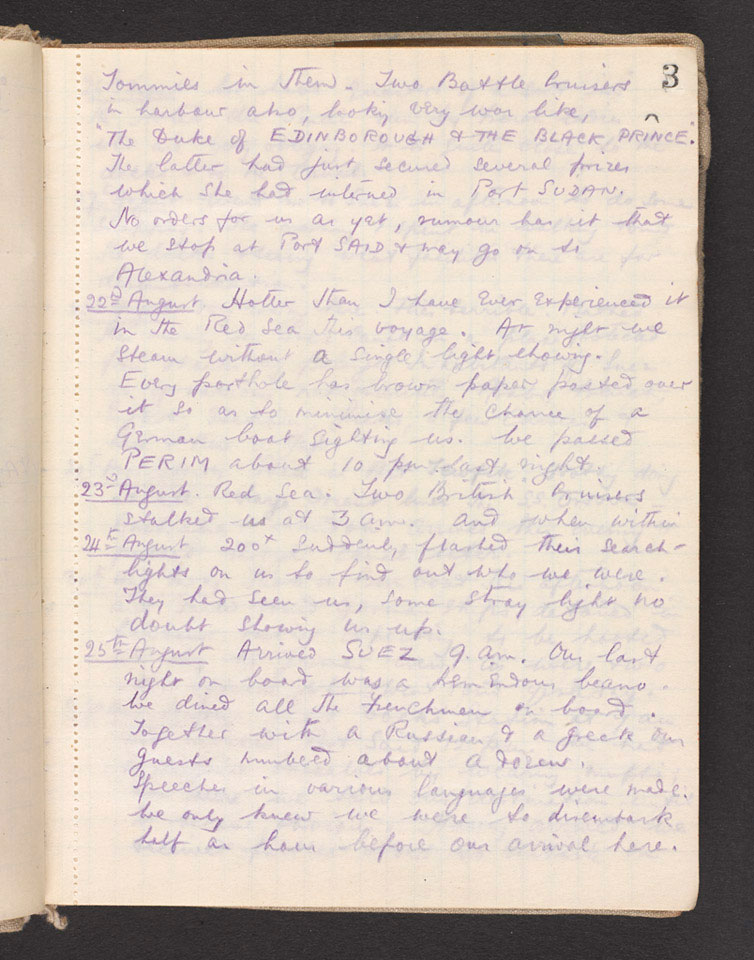 3
Tommies in them. Two Battle Cruisers
in harbour also, looking very war like,
"The Duke of EDINBOROUGH & THE BLACK PRINCE."
The latter had just secured several prizes
which she had interned in Port SUDAN.
No orders for us as yet, rumour has it that
we stop at Port SAID & may go on to
Alexandria.
22nd August. Hotter than I have ever experienced it
in the Red Sea this voyage. At night we
steam without a single light showing.
Every porthole has brown paper pasted over
it so as to minimise the chance of a
German boat sighting us. We passed
PERIM about 10 pm. last night.
23rd August. Red Sea. Two British Cruisers
stalked us at 3 am. and when within
24th August 200x suddenly flashed their search-
lights on us to find out who we were.
They had seen us, some stray light no
doubt showing us up.
25th August Arrived SUEZ 9. am. Our last
night on board was a tremendous beano.
We dined all the Frenchmen on board.
Together with a Russian & a Greek our
guests numbered about a dozen.
Speeches in various languages were made.
We only knew we were to disembark
half an hour before our arrival here.